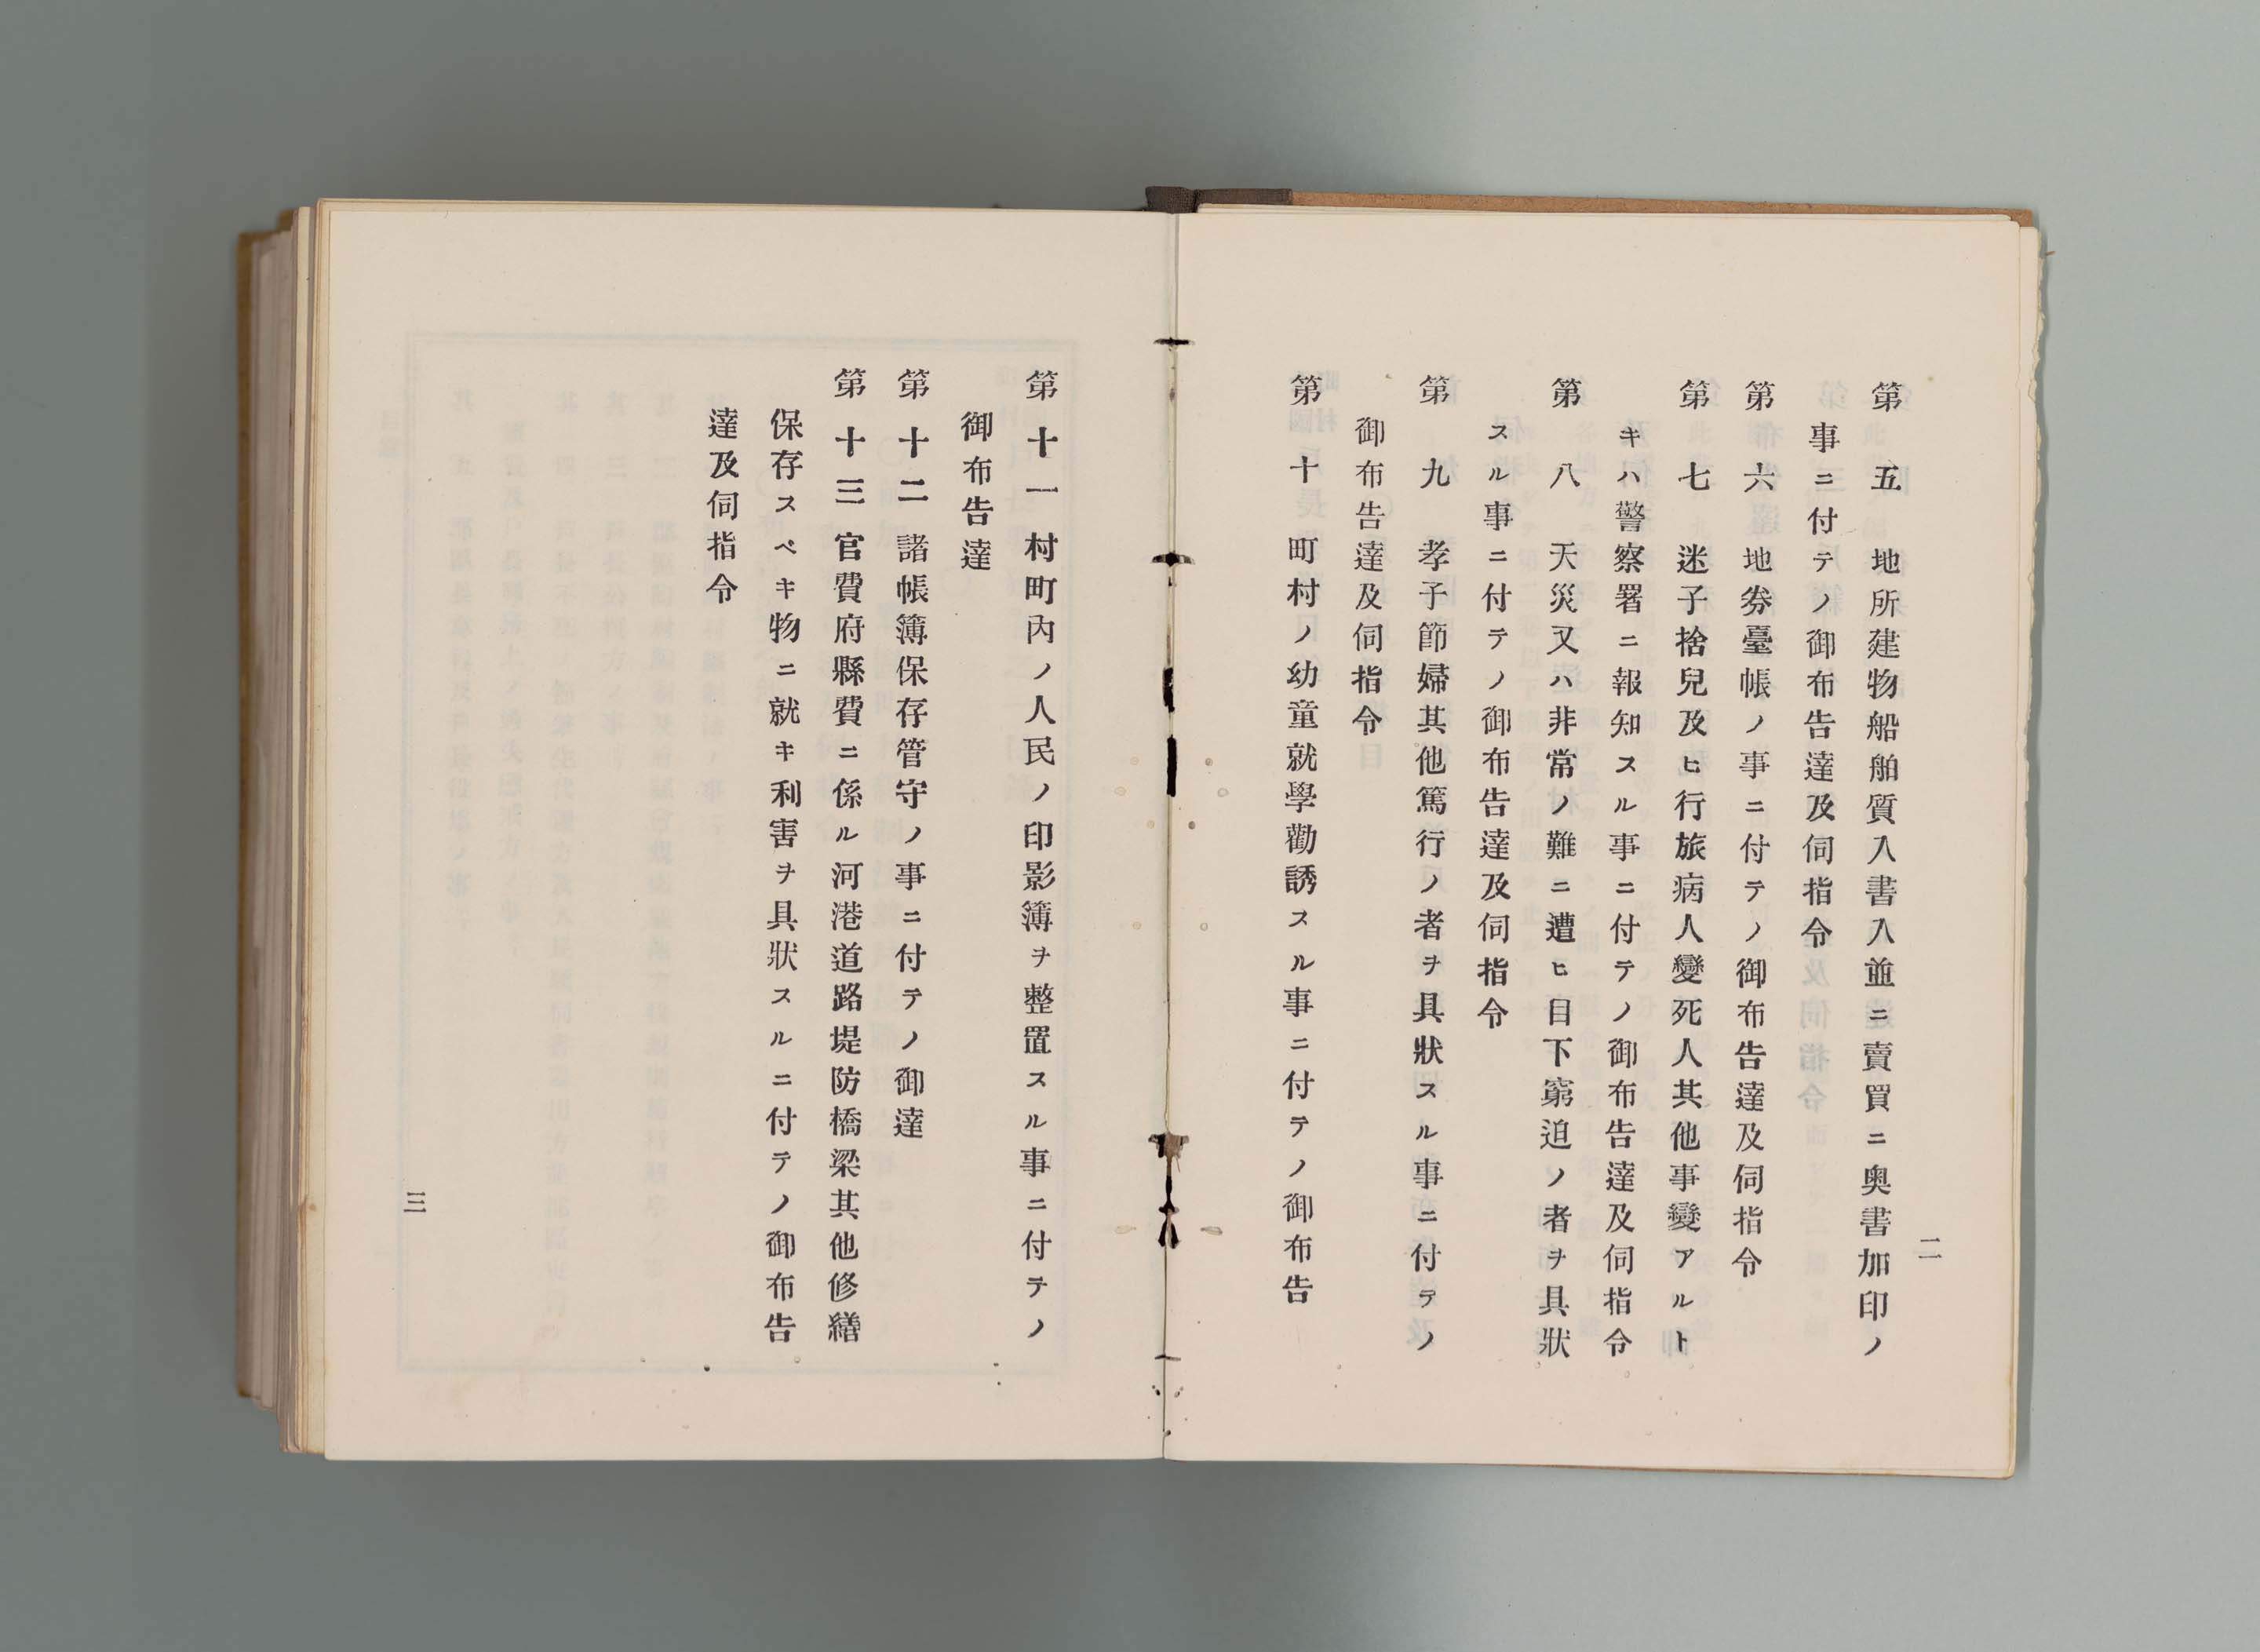 二
第五　地所建物船舶質入書入並ニ賣買ニ奥書加印ノ
事ニ付テノ御布告達及伺指令
第六　地券臺帳ノ事ニ付テノ御布告達及伺指令
第七　迷子捨兒及ヒ行旅病人變死人其他事變アルト
キハ警察署ニ報知スル事ニ付テノ御布告達及伺指令
第八　天災又ハ非常ノ難ニ遭ヒ目下窮迫ノ者ヲ具狀
スル事ニ付テノ御布告達及伺指令
第九　孝子節婦其他篤行ノ者ヲ具狀スル事ニ付テノ
御布告達及伺指令
第十　町村ノ幼童就學勸誘スル事ニ付テノ御布告
第十一　村町內ノ人民ノ印影簿ヲ整置スル事ニ付テノ
御布告達
第十二　諸帳簿保存管守ノ事ニ付テノ御達
第十三　官費府縣費ニ係ル河港道路堤防橋梁其他修繕
保存スベキ物ニ就キ利害ヲ具狀スルニ付テノ御布告
達及伺指令
三